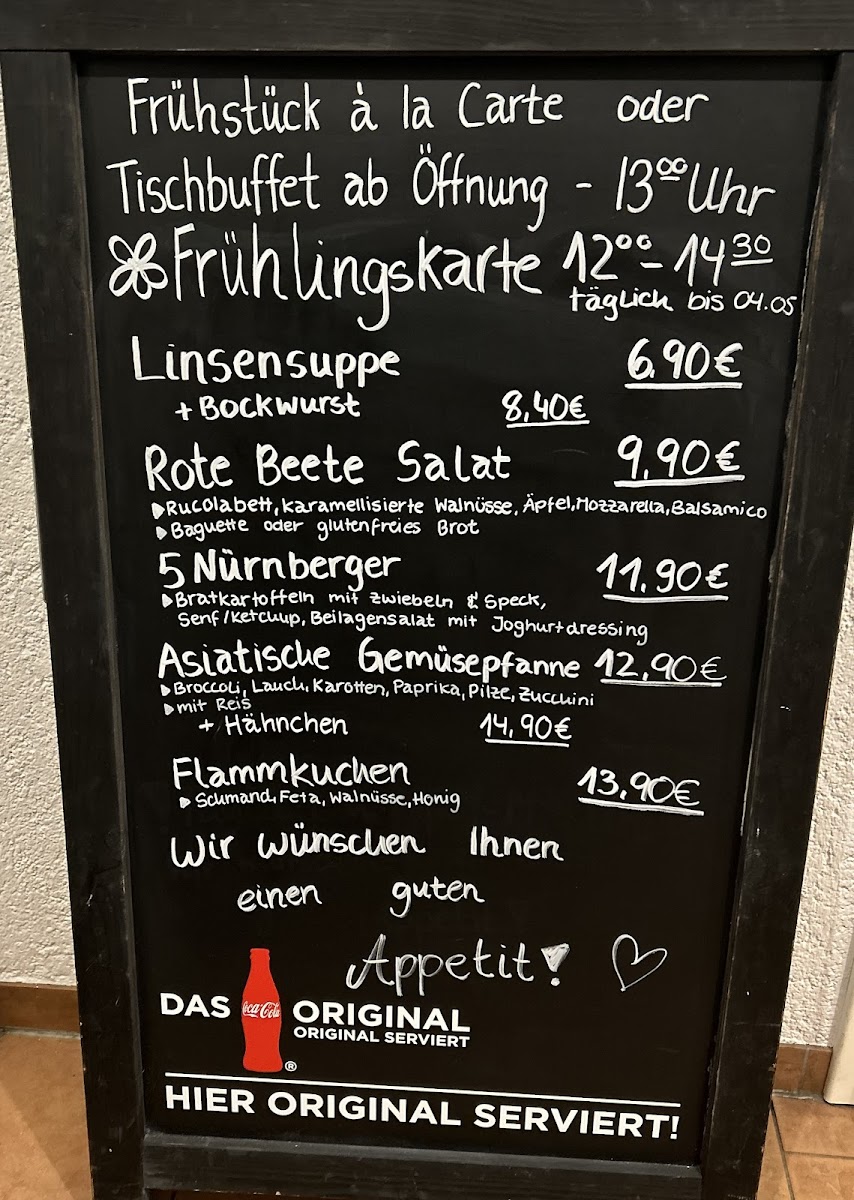 Frühstück à la Carte oder
Tischbuffet ab Öffnung - 13⁰⁰ Uhr
Frühlingskarte 12⁰⁰ - 14³⁰
täglich bis 04.05
Linsensuppe 6,90€
+ Bockwurst 8,40€
Rote Beete Salat 9,90€
▸Rucolabett, karamellisierte Walnüsse, Äpfel, Mozzarella, Balsamico
▸Baguette oder glutenfreies Brot
5 Nürnberger 11,90€
▸Bratkartoffeln mit Zwiebeln & Speck,
Senf/Ketchup, Beilagensalat mit Joghurtdressing
Asiatische Gemüsepfanne 12,90€
▸Broccoli, Lauch, Karotten, Paprika, Pilze, Zucchini
▸mit Reis
+ Hähnchen 14,90€
Flammkuchen 13,90€
▸Schmand, Feta, Walnüsse, Honig
Wir wünschen Ihnen
einen guten
Appetit!
DAS Coca-Cola ORIGINAL
ORIGINAL SERVIERT
®
HIER ORIGINAL SERVIERT!